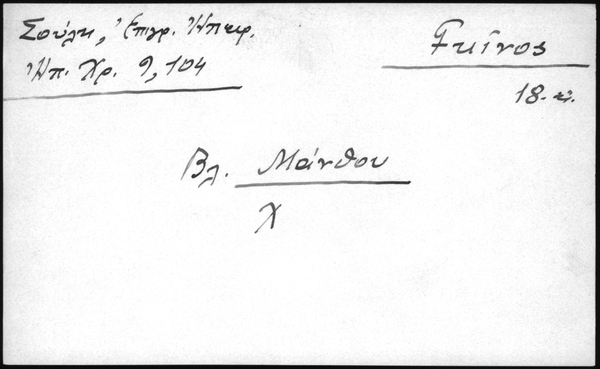 Σούλη, Ἐπιγρ. Ἠπειρ.
Ἠπ. Χρ. 9, 104
Γκίνος
18. αἰ.
Βλ. Μάνθου
Χ